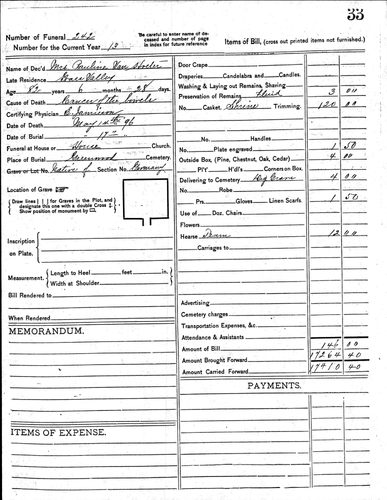 33
Number of Funeral 242
Number for the Current Year 13
Be careful to enter name of deceased and number of page in index for future reference
Items of Bill, (cross out printed items not furnished.)
Name of Dec'd Mrs Pauline Van
Late Residence Grass Valley
Age 82 years 6 months 28 days.
Cause of Death Cancer of the bowels
Certifying Physician C. Jamieson
Date of Death May 14th 96
Date of Burial 17"
Funeral at House or House Church.
Place of Burial Greenwood Cemetery.
Grave or Lot No. Native of Section No. Germany
Location of Grave
Draw lines | | for Graves in the Plot, and designate this one with a double Cross Show position of monument by
Inscription on Plate.
Measurement. Length to Heel feet in.
Width at Shoulder
Bill Rendered to
When Rendered
MEMORANDUM.
ITEMS OF EXPENSE.
Door Crape
Draperies, Candelabra and Candles.
Washing & Laying out Remains, Shaving
Preservation of Remains, Fluid 3 00
No. Casket, Shrine Trimming. 120 00
No. Handles
Plate engraved 1 50
Outside Box, (Pine, Chestnut, Oak, Cedar) 4 00
P'lY H'd'ls Corners on Box.
Delivering to Cemetery Dig Grave 4 00
No. Robe
Prs. Gloves Linen Scarfs. 1 50
Use of Doz. Chairs
Flowers
Hearse Team 12 00
Carriages to
Advertising
Cemetery charges
Transportation Expenses, &c.
Attendance & Assistants
Amount of Bill 146 00
Amount Brought Forward 17264 40
Amount Carried Forward 17410 40
PAYMENTS.